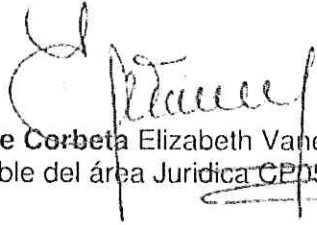 e Corbeta Elizabeth Vane
ble del área Juridica CE05